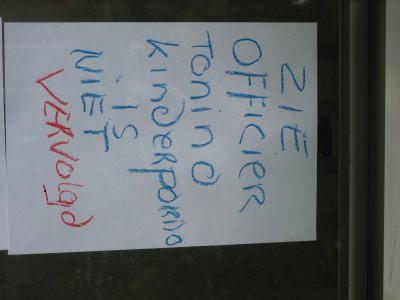 ZIE
OFFICIER
Tonino
kinderporno
is
NIET
VERVOLGD